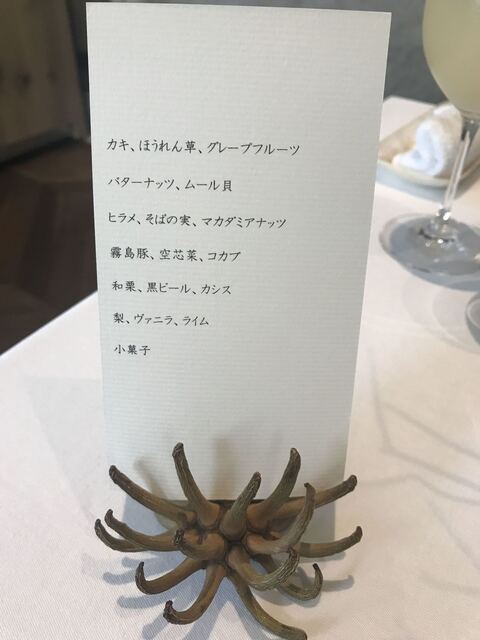 カキ、ほうれん草、グレープフルーツ
バターナッツ、ムール貝
ヒラメ、そばの実、マカダミアナッツ
霧島豚、空芯菜、コカブ
和栗、黒ビール、カシス
梨、ヴァニラ、ライム
小菓子